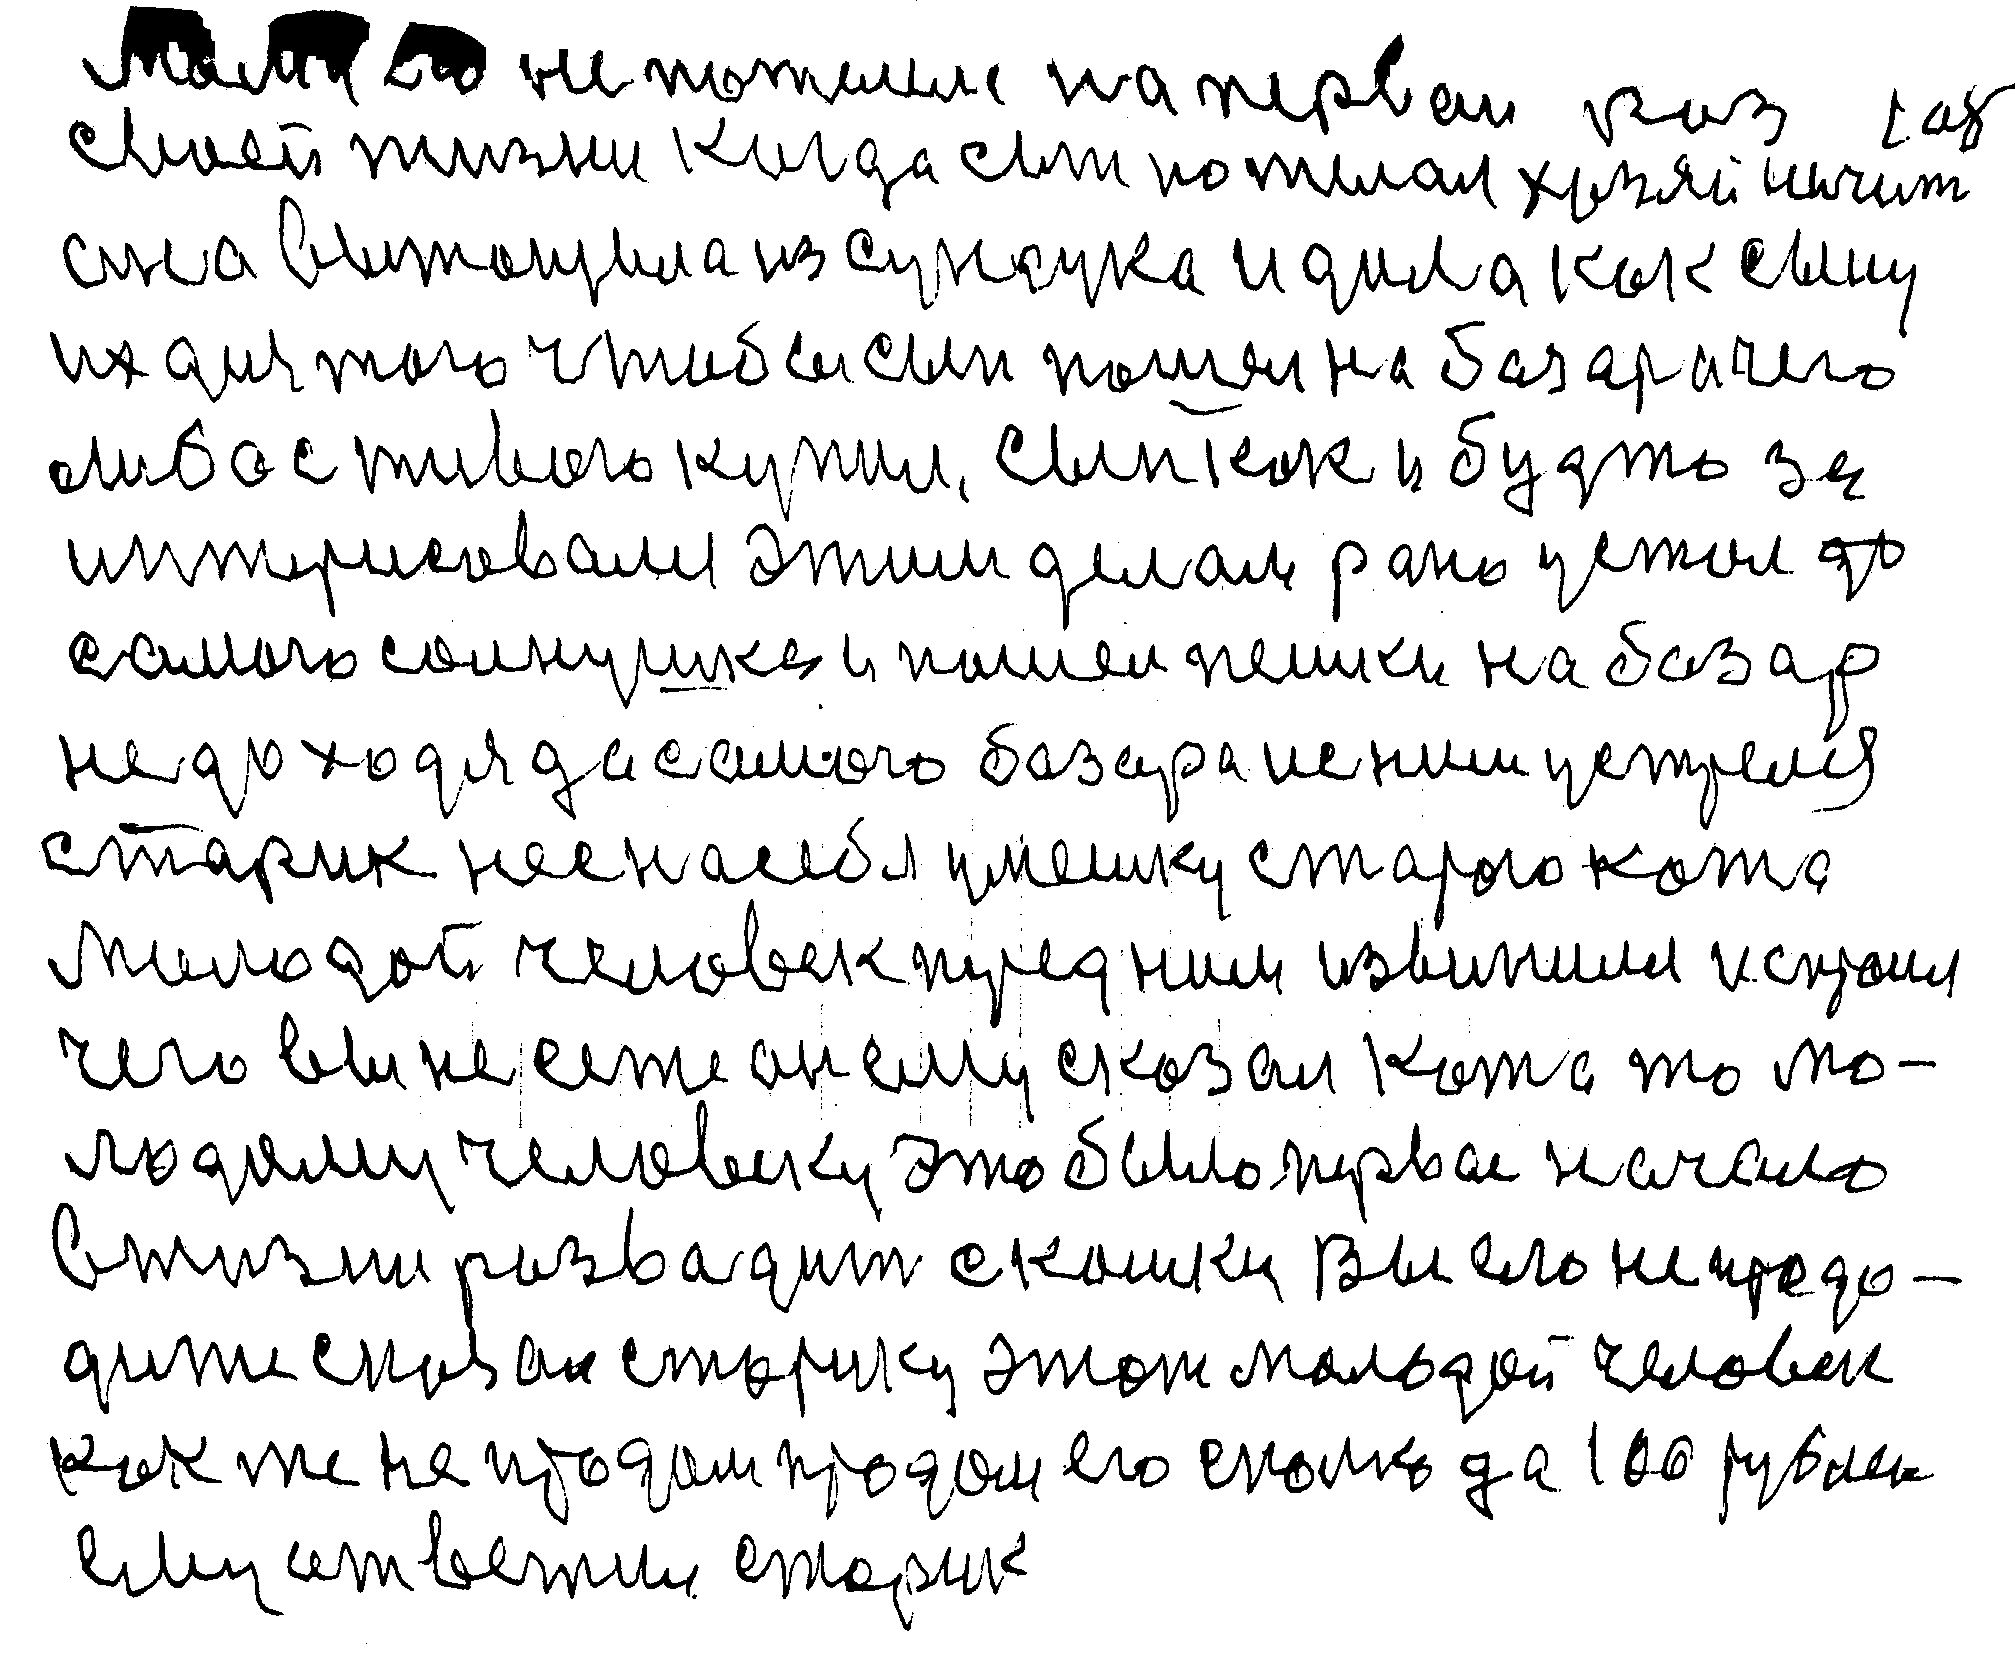 Мама его не пожелела на первай раз
своей жизни когда сын пожелал хозяйничит
она вытощила из сундука и дала как сыну
их для того чтобы сын пошел на базар а чего
либо с живого купил, сын как и будто за
интерисовалсл этим делам рано устал до
самого солнушка и пошел пешки на базар
не доходя да самого базара и с ним устрелся
старик нес на себя у мешку старого кота
Молодой человек пред ним извинилсл и спросил
чего вы несете он ему сказал кота то мо-
лодому человеку это было первае начало
в жизни развадит с кошки Вы его не продо-
дите сказал старику этот молодой человек
как же не продам продам его сколко да 100 рублей
ему ответил старик